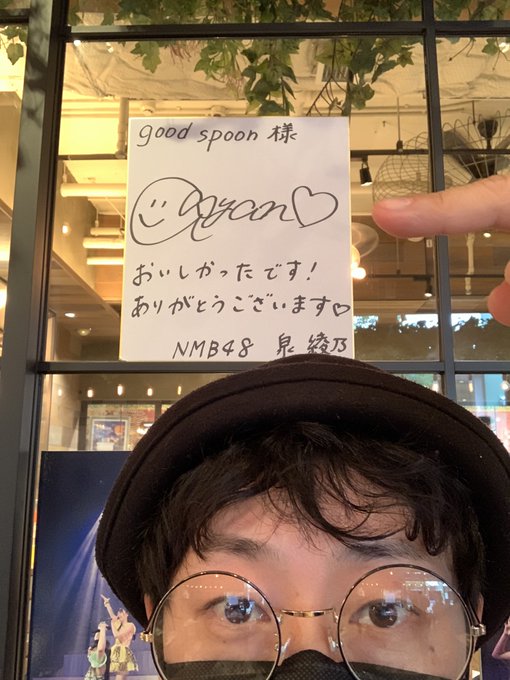 good spoon 様
Ayan♡
おいしかったです!
ありがとうございます♡
NMB48 泉 綾乃